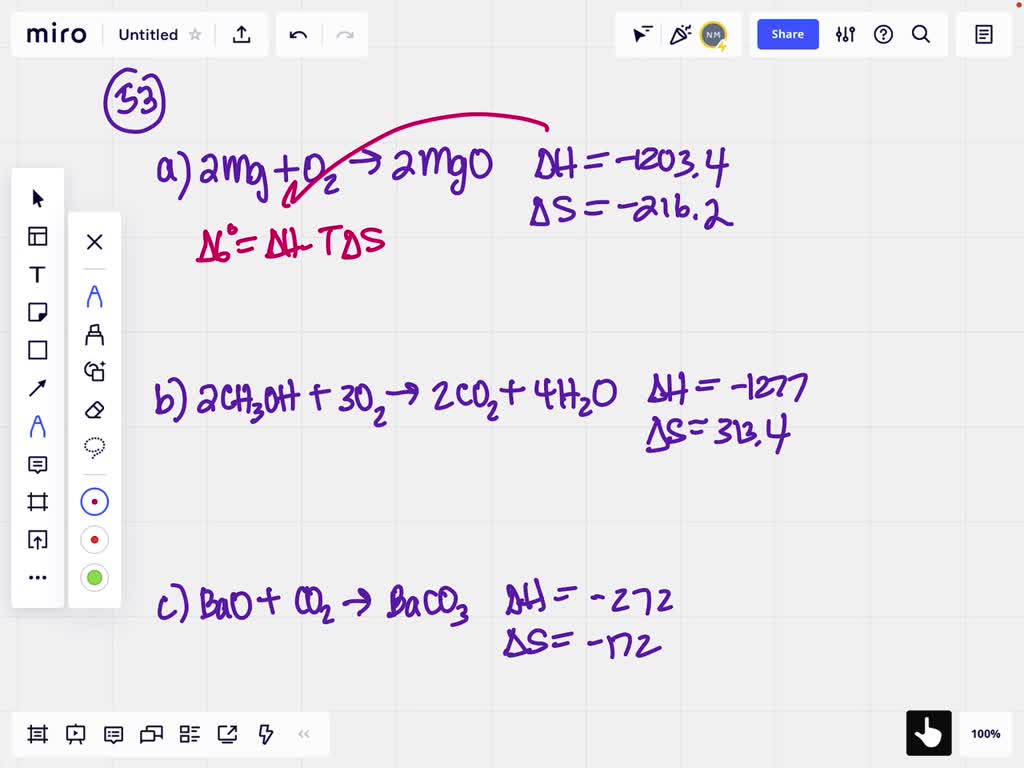 miro
Untitled
NM
Share
53
a) 2Mg + O₂ → 2MgO
ΔH = -1203.4
ΔS = -216.2
ΔG° = ΔH - TΔS
b) 2CH₃OH + 3O₂ → 2CO₂ + 4H₂O
ΔH = -1277
ΔS = 313.4
c) BaO + CO₂ → BaCO₃
ΔH = -272
ΔS = -172
T
100%